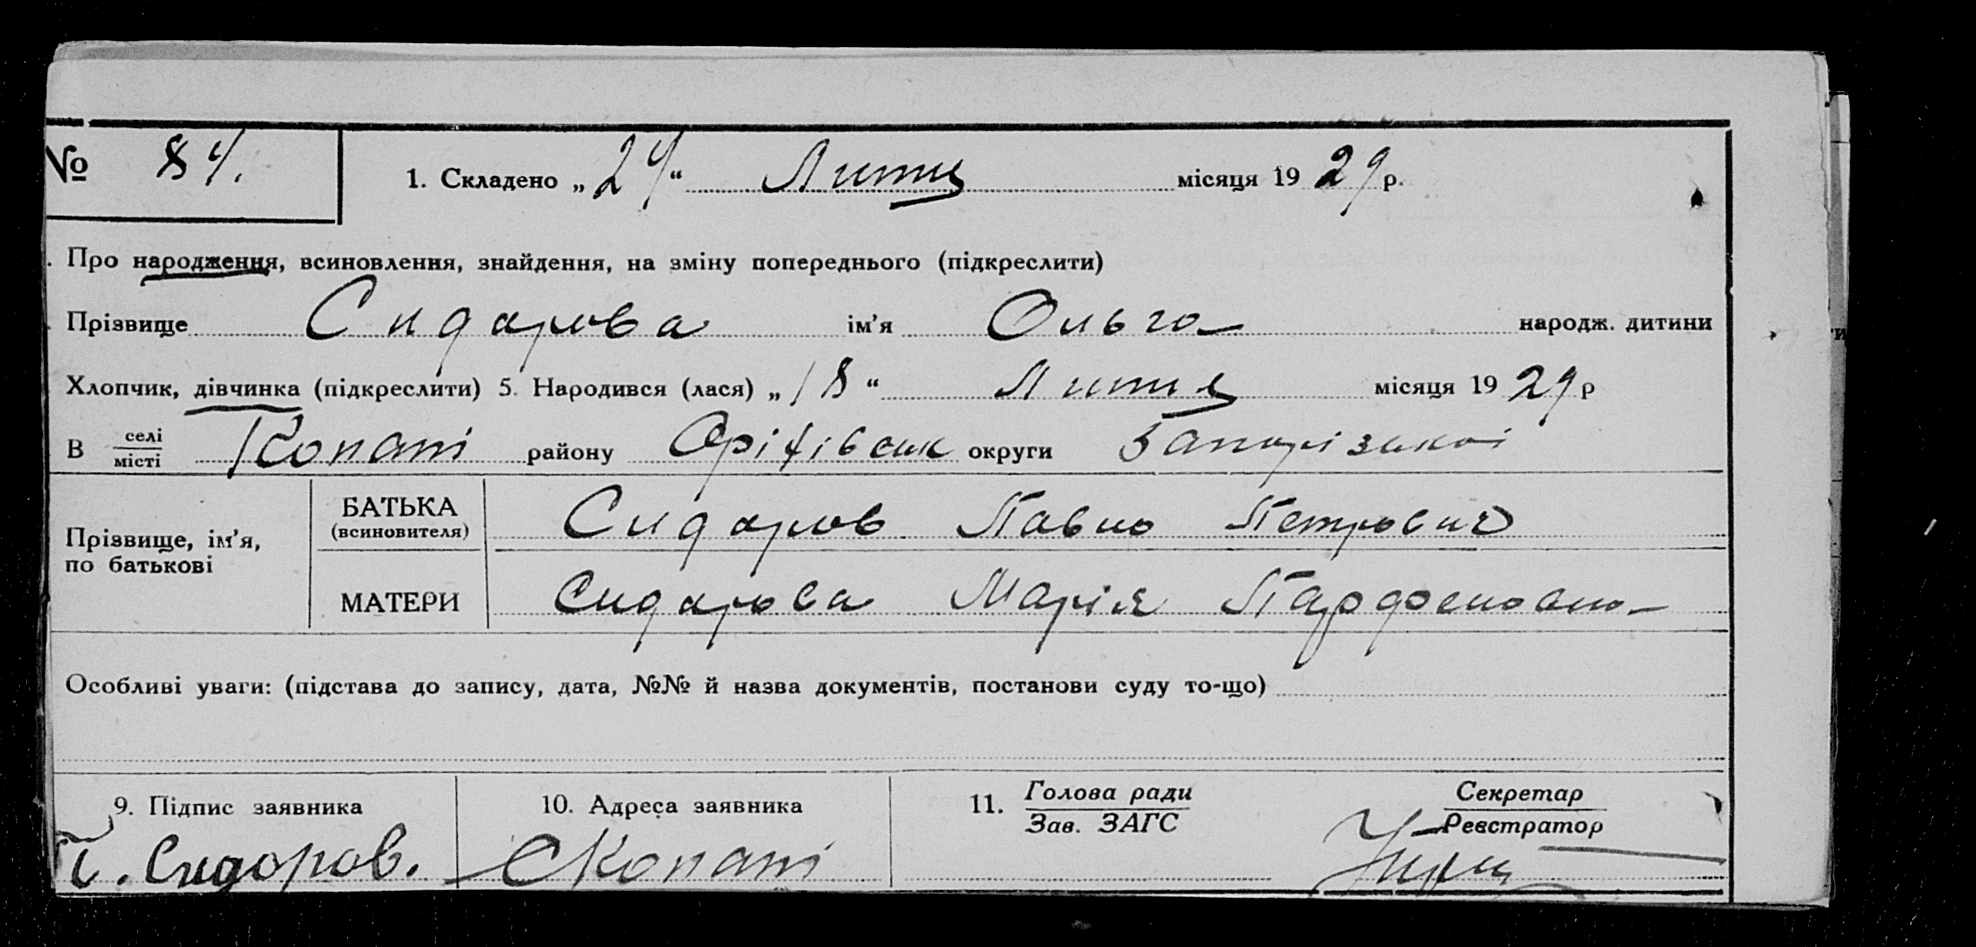 № 84. 1. Складено „24“ Лютня місяця 1929 р.
Про народження, всиновлення, знайдення, на зміну попереднього (підкреслити)
Прізвище Сидорова ім'я Ольга народж. дитини
Хлопчик, дівчинка (підкреслити) 5. Народився (лася) „18“ Лютня місяця 1929 р
В селі
місті Копані району Оріхівськ округи Запорізької
Прізвище, ім'я,
по батькові
БАТЬКА
(всиновителя) Сидоров Павло Петрович
МАТЕРИ Сидорова Марія Парфеновна
Особливі уваги: (підстава до запису, дата, №№ й назва документів, постанови суду то-що)
9. Підпис заявника 10. Адреса заявника 11. Голова ради
Зав. ЗАГС Секретар
Реєстратор
П. Сидоров. с Копані